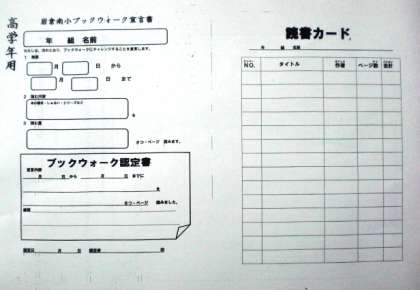 高学年用
岩倉南小ブックウォーク宣言書
年 組 名前
わたしは、次のとおり、ブックウォークにチャレンジすることを宣言します。
1 期間
月 日 から
月 日 まで
2 読む内容
を
3 読む量
さつ・ページ 読みます。
ブックウォーク認定書
宣言内容
月 日 から 月 日 までに
を
さつ・ページ 読みました。
感想
認定日 月 日 認定者 印
読書カード
年 組 名前
NO. タイトル 作者 ページ数 合計